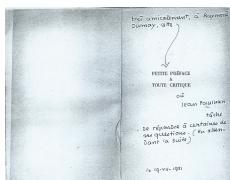 très amicalement, à Raymond
Dumay, cette
PETITE PRÉFACE
À
TOUTE CRITIQUE
où
Jean Paulhan
tâche
de répondre à certaines de
ses questions. (en atten-
dant la suite)
le 19-VII-1951